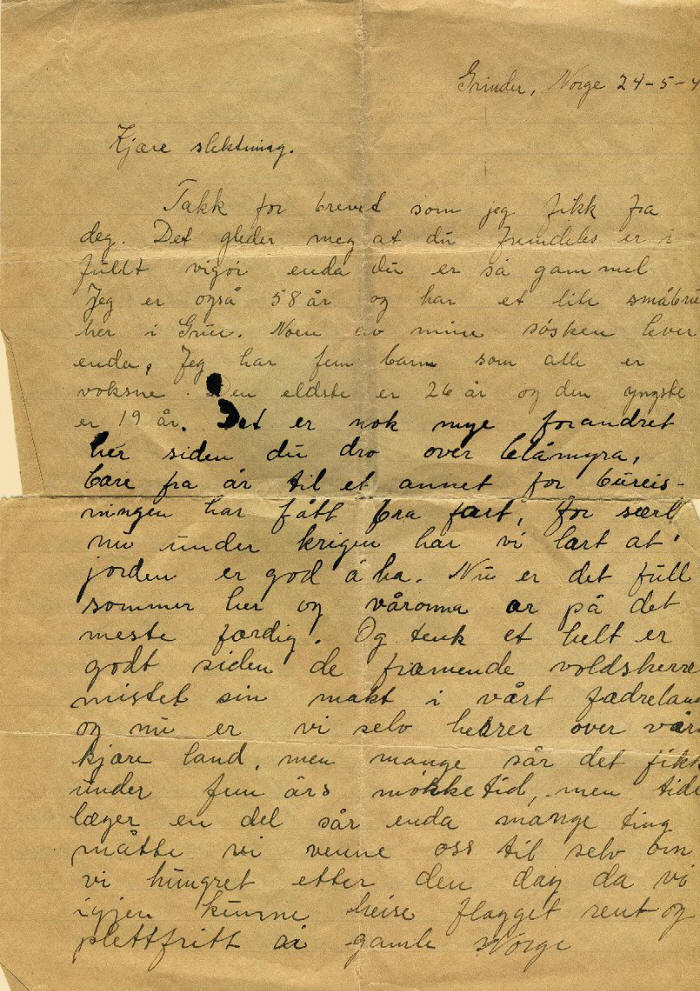 Grinder, Norge 24-5-4
Kjære slektning.
Takk for brevet som jeg fikk fra
deg. Det gleder meg at du fremdeles er i
fullt vigør enda du er så gammel
Jeg er også 58 år og har et lite småbru
her i Grue. Noen av mine søsken lever
enda, Jeg har fem barn som alle er
voksne. Den eldste er 26 år og den yngste
er 19 år. Det er nok mye forandret
her siden du dro over blåmyra,
bare fra år til et annet for bureis-
ningen har fått bra fart, for særl
nu under krigen har vi lært at
jorden er god å ha. Nu er det full
sommer her og våronna er på det
meste færdig. Og tenk et helt er
godt siden de fremende voldsherre
mistet sin makt i vårt fædreland
og nu er vi selv herrer over vårt
kjære land, men mange sår det fikk
under fem års mørketid, men tide
læger en del sår enda mange ting
måtte vi venne oss til selv om
vi hungret etter den dag da vi
igjen kunne heise flagget rent og
plettfritt i gamle Norge